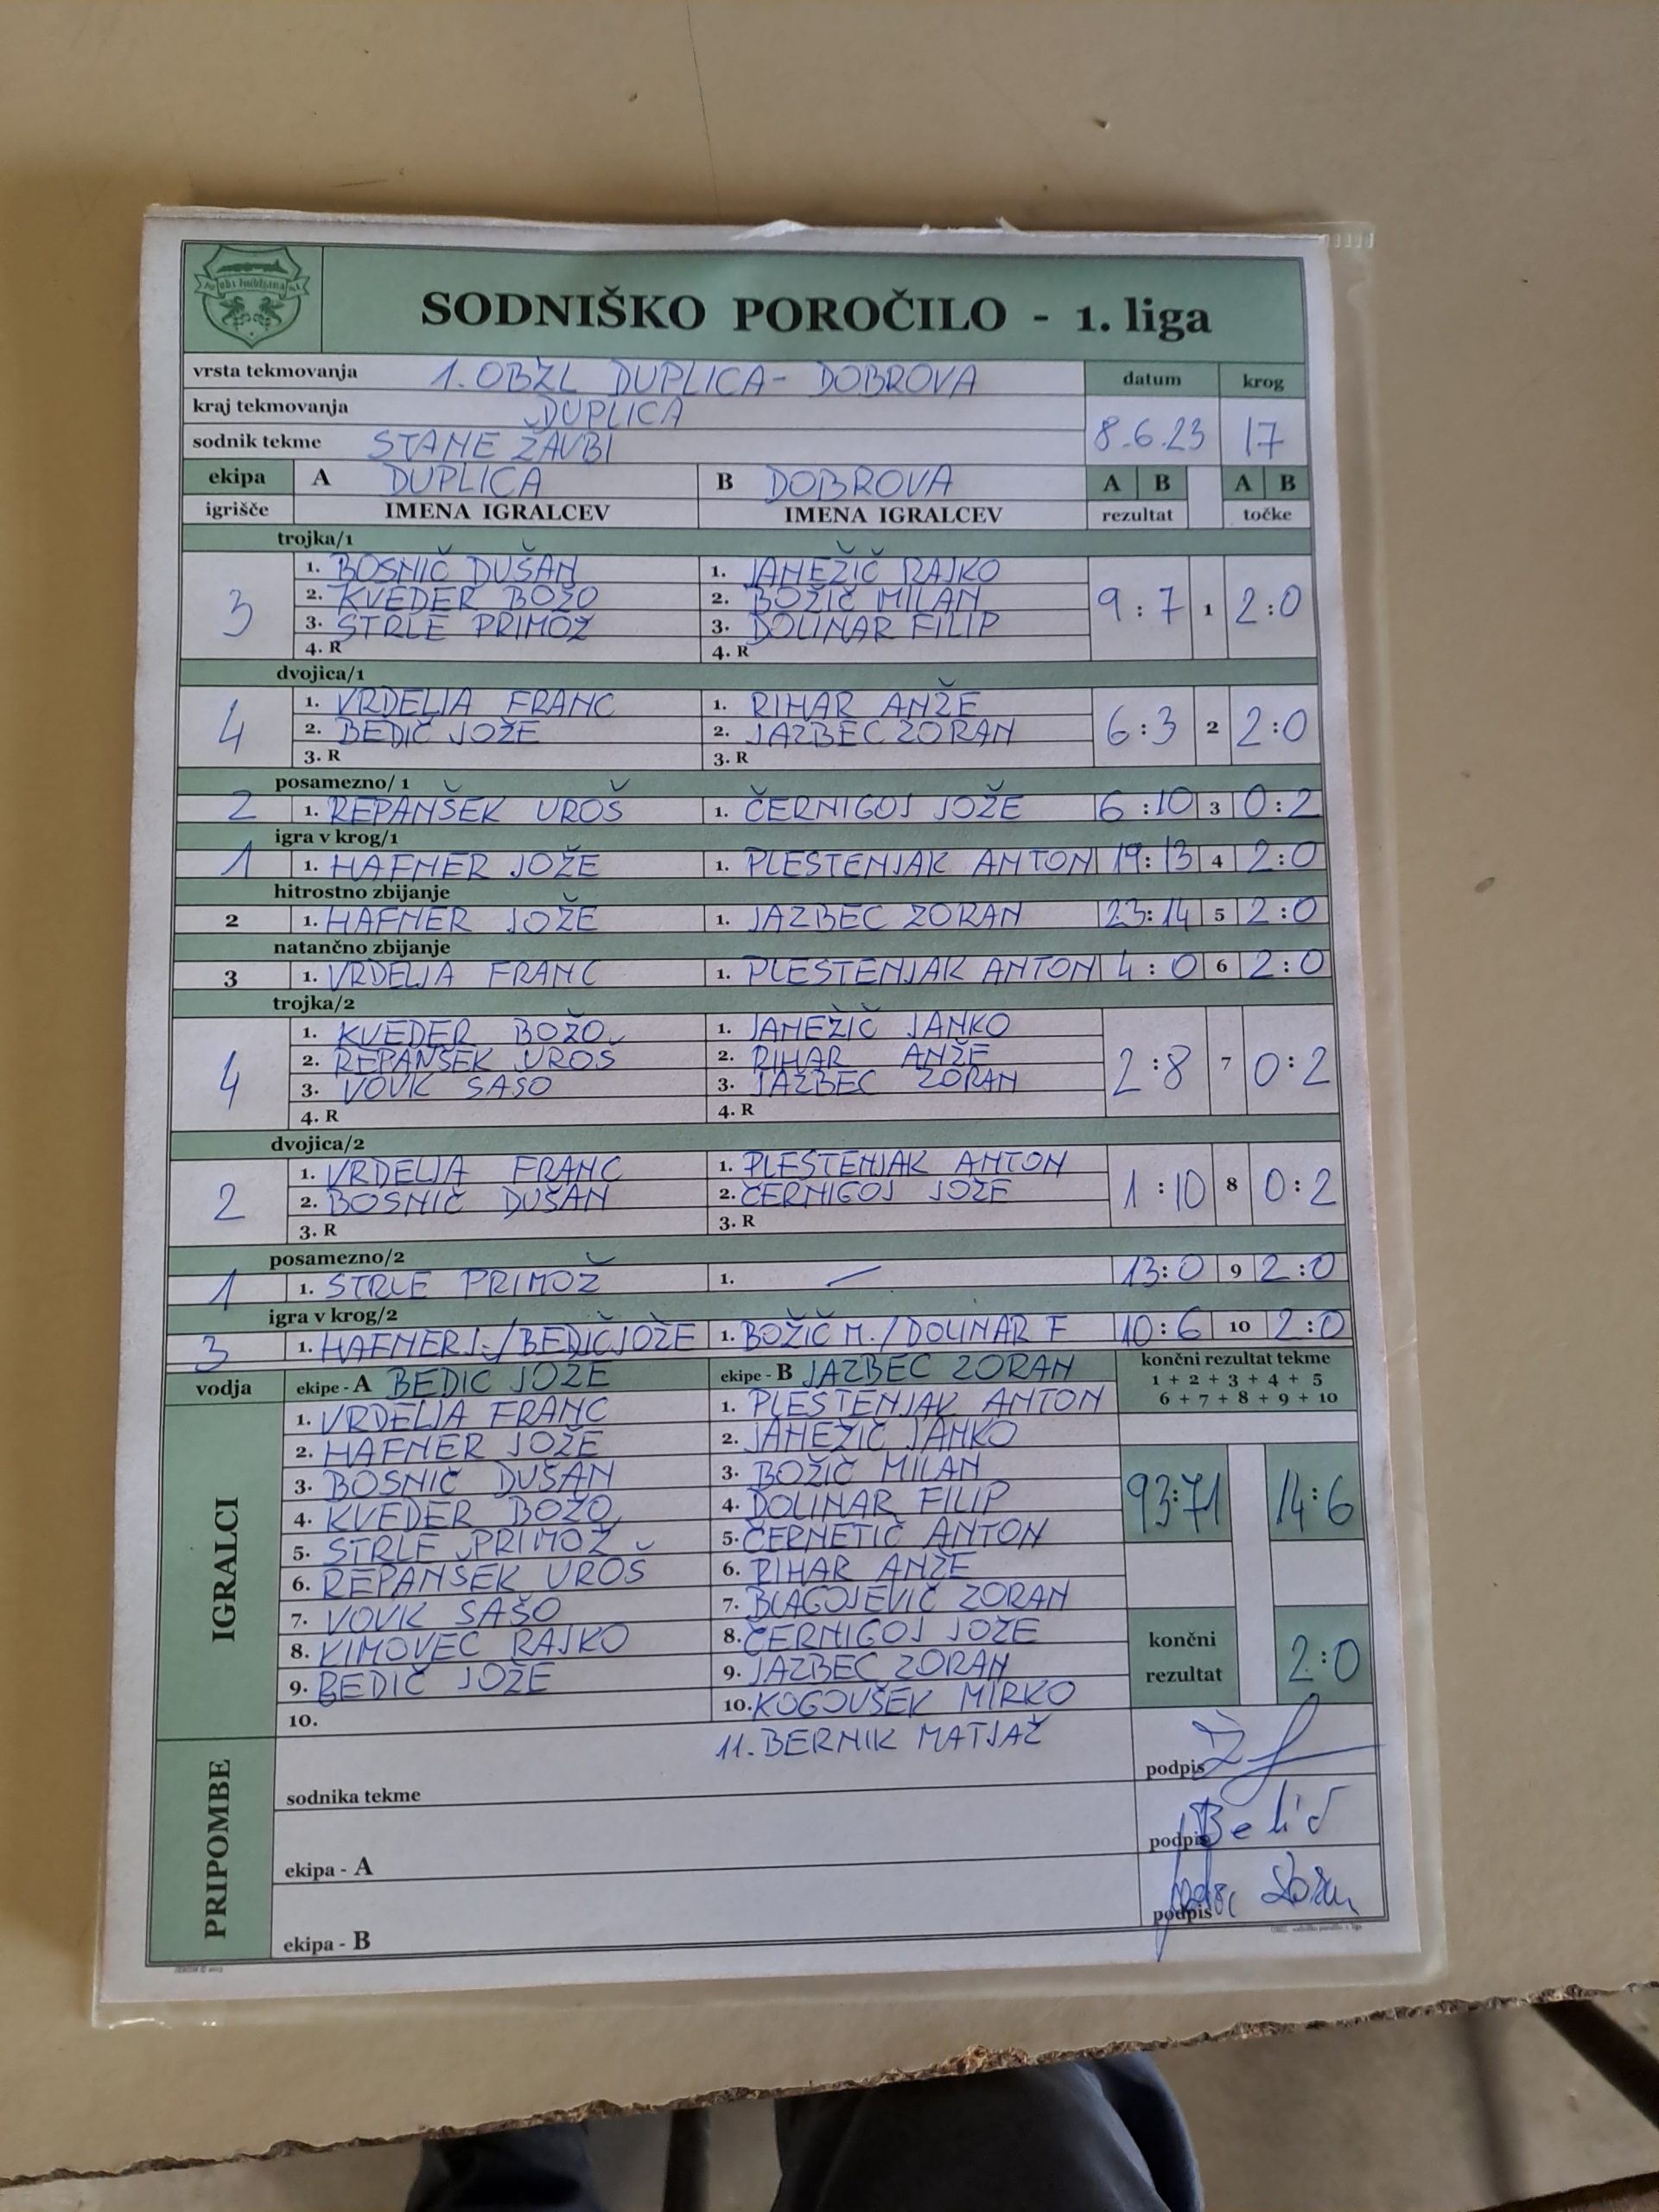 SODNIŠKO POROČILO - 1. liga
vrsta tekmovanja 1. OBZL DUPLICA - DOBROVA datum krog
kraj tekmovanja DUPLICA 8.6.23 17
sodnik tekme STANE ZAVBI
ekipa A DUPLICA B DOBROVA A B A B
igrišče IMENA IGRALCEV IMENA IGRALCEV rezultat točke
trojka/1
3 1. BOSNIČ DUŠAN 1. JANEŽIČ RAJKO 9:7 1 2:0
2. KVEDER BOŽO 2. BOŽIČ MILAN
3. STRLE PRIMOŽ 3. DOLINAR FILIP
4. R 4. R
dvojica/1
4 1. VRDELJA FRANC 1. RIHAR ANŽE 6:3 2 2:0
2. BEDIČ JOŽE 2. JAZBEC ZORAN
3. R 3. R
posamezno/1
2 1. REPANŠEK UROŠ 1. ČERNIGOJ JOŽE 6:10 3 0:2
igra v krog/1
1 1. HAFNER JOŽE 1. PLESTENJAK ANTON 19:13 4 2:0
hitrostno zbijanje
2 1. HAFNER JOŽE 1. JAZBEC ZORAN 23:14 5 2:0
natančno zbijanje
3 1. VRDELJA FRANC 1. PLESTENJAK ANTON 4:0 6 2:0
trojka/2
4 1. KVEDER BOŽO 1. JANEŽIČ JANKO 2:8 7 0:2
2. REPANŠEK UROŠ 2. RIHAR ANŽE
3. VOVK SAŠO 3. JAZBEC ZORAN
4. R 4. R
dvojica/2
2 1. VRDELJA FRANC 1. PLESTENJAK ANTON 1:10 8 0:2
2. BOSNIČ DUŠAN 2. ČERNIGOJ JOŽE
3. R 3. R
posamezno/2
1 1. STRLE PRIMOŽ 1. — 13:0 9 2:0
igra v krog/2
3 1. HAFNER J./BEDIČ JOŽE 1. BOŽIČ M./DOLINAR F 10:6 10 2:0
vodja ekipe - A BEDIČ JOŽE ekipe - B JAZBEC ZORAN končni rezultat tekme
1 + 2 + 3 + 4 + 5
6 + 7 + 8 + 9 + 10
IGRALCI
1. VRDELJA FRANC 1. PLESTENJAK ANTON
2. HAFNER JOŽE 2. JANEŽIČ JANKO
3. BOSNIČ DUŠAN 3. BOŽIČ MILAN 93:71 14:6
4. KVEDER BOŽO 4. DOLINAR FILIP
5. STRLE PRIMOŽ 5. ČERNETIČ ANTON
6. REPANŠEK UROŠ 6. RIHAR ANŽE
7. VOVK SAŠO 7. BLAGOJEVIČ ZORAN
8. KIMOVEC RAJKO 8. ČERNIGOJ JOŽE končni
9. BEDIČ JOŽE 9. JAZBEC ZORAN rezultat 2:0
10. 10. KOGOVŠEK MIRKO
11. BERNIK MATJAŽ
PRIPOMBE
sodnika tekme podpis
ekipa - A podpis
ekipa - B podpis